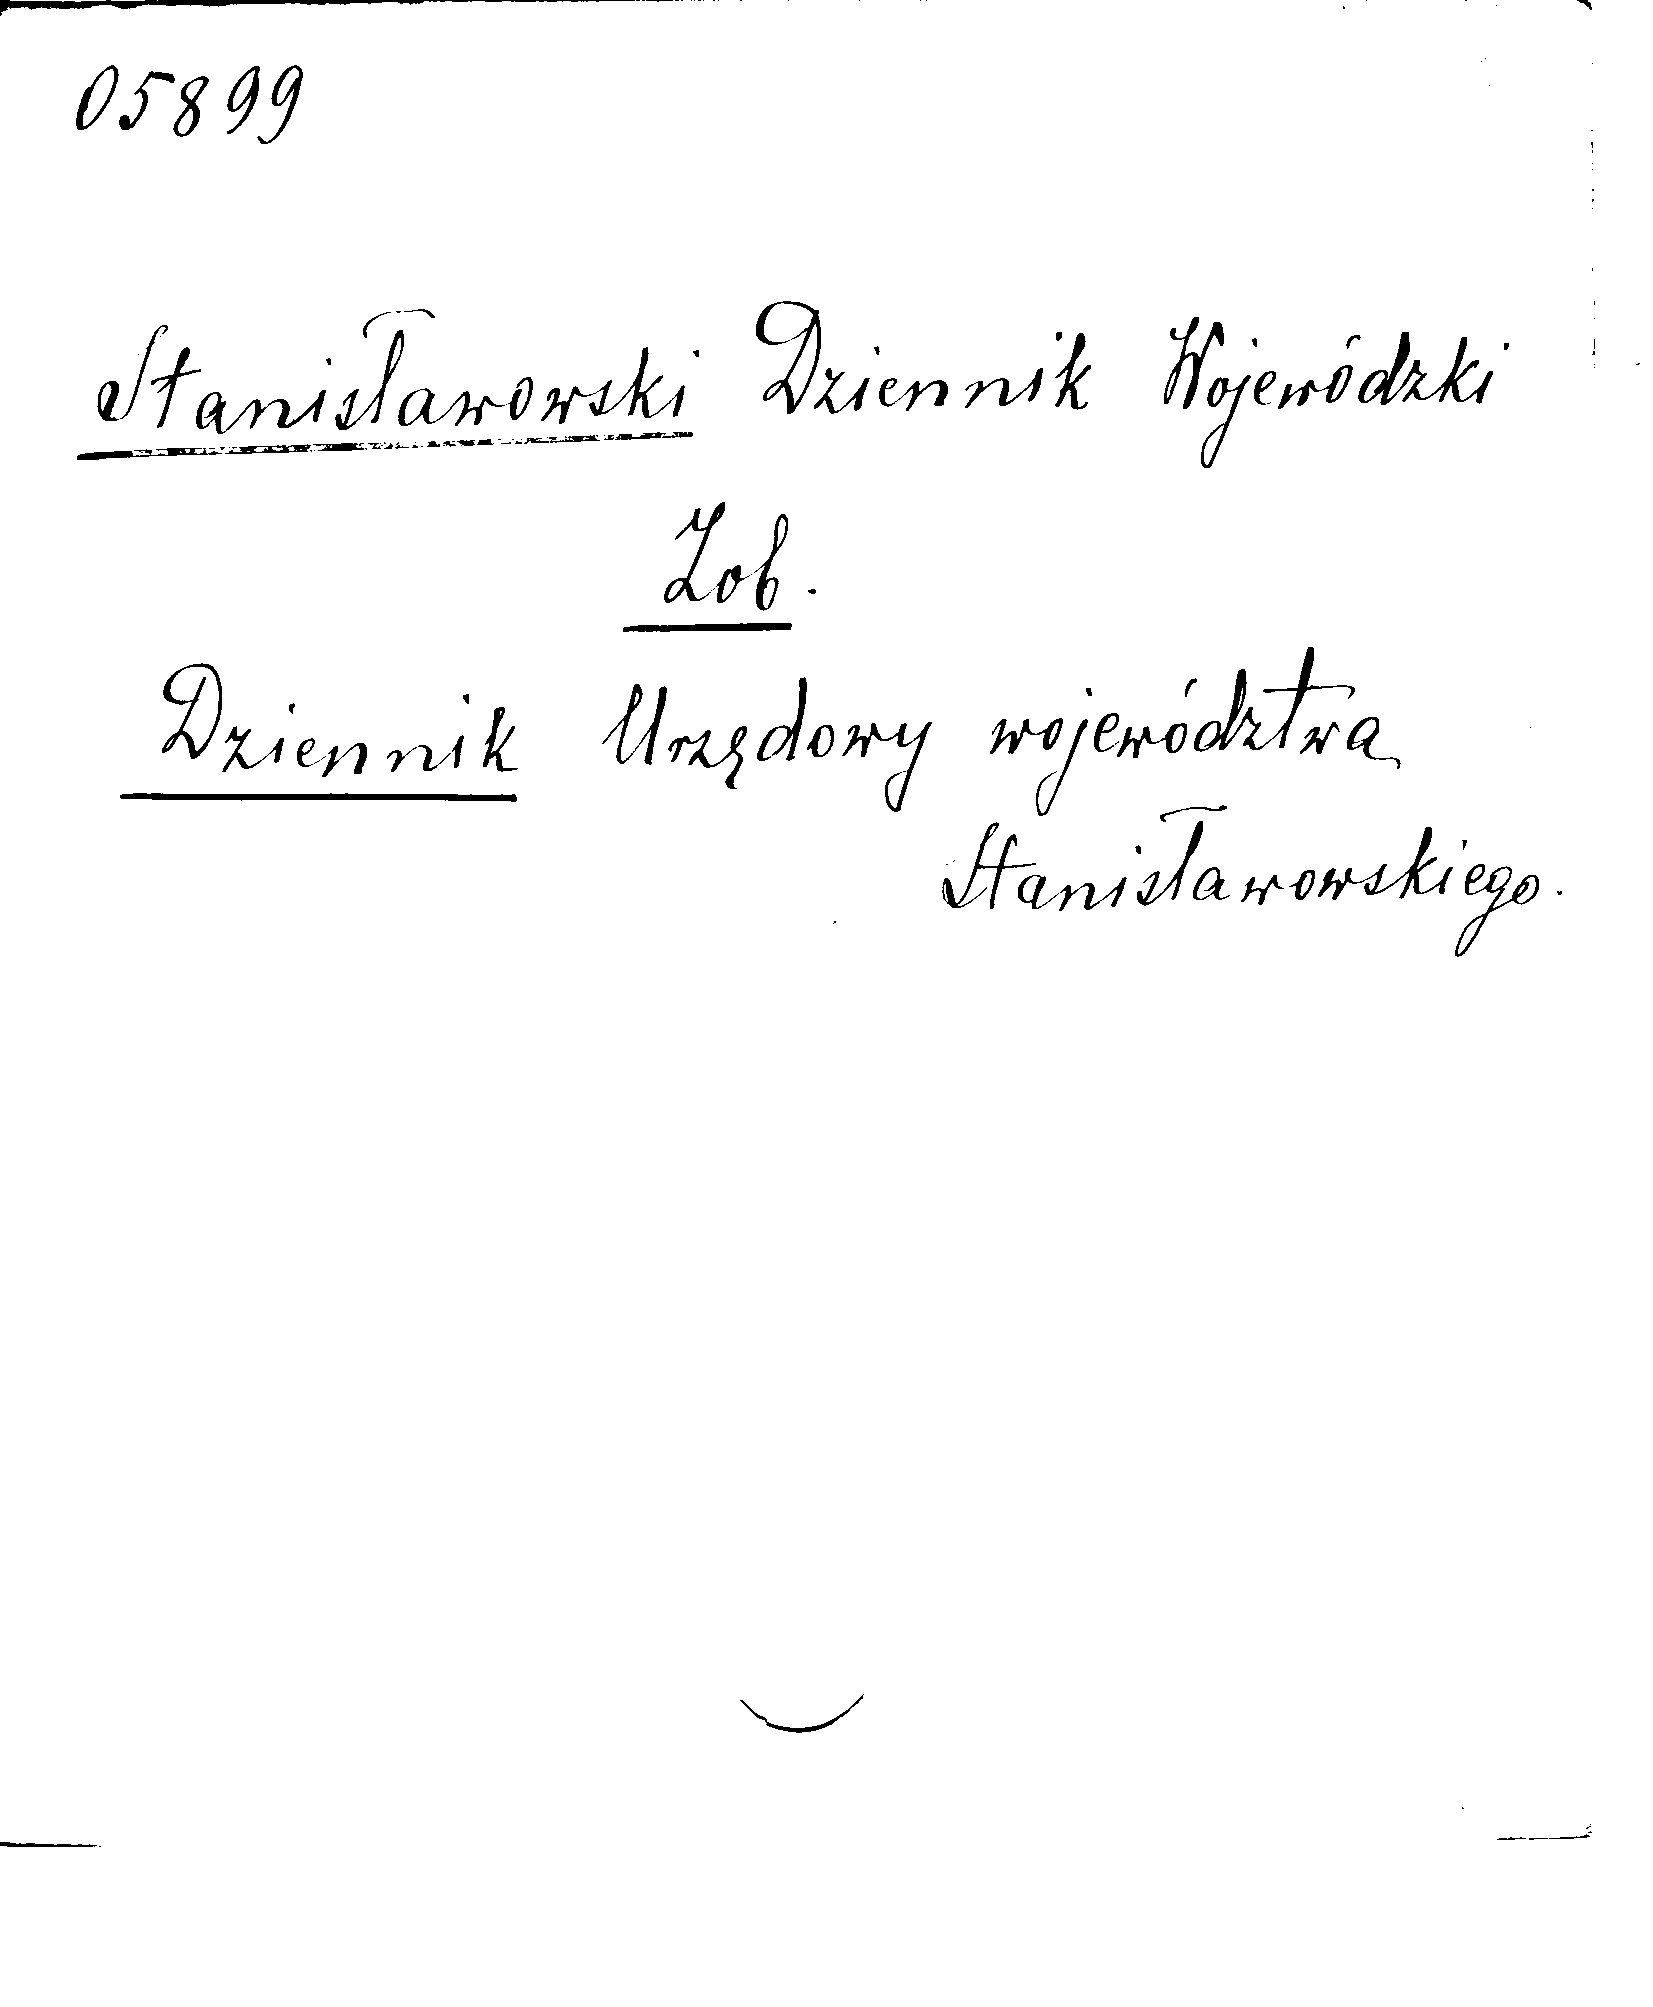 05899
Stanisławowski Dziennik Wojewódzki
Zob.
Dziennik Urzędowy województwa
Stanisławowskiego.